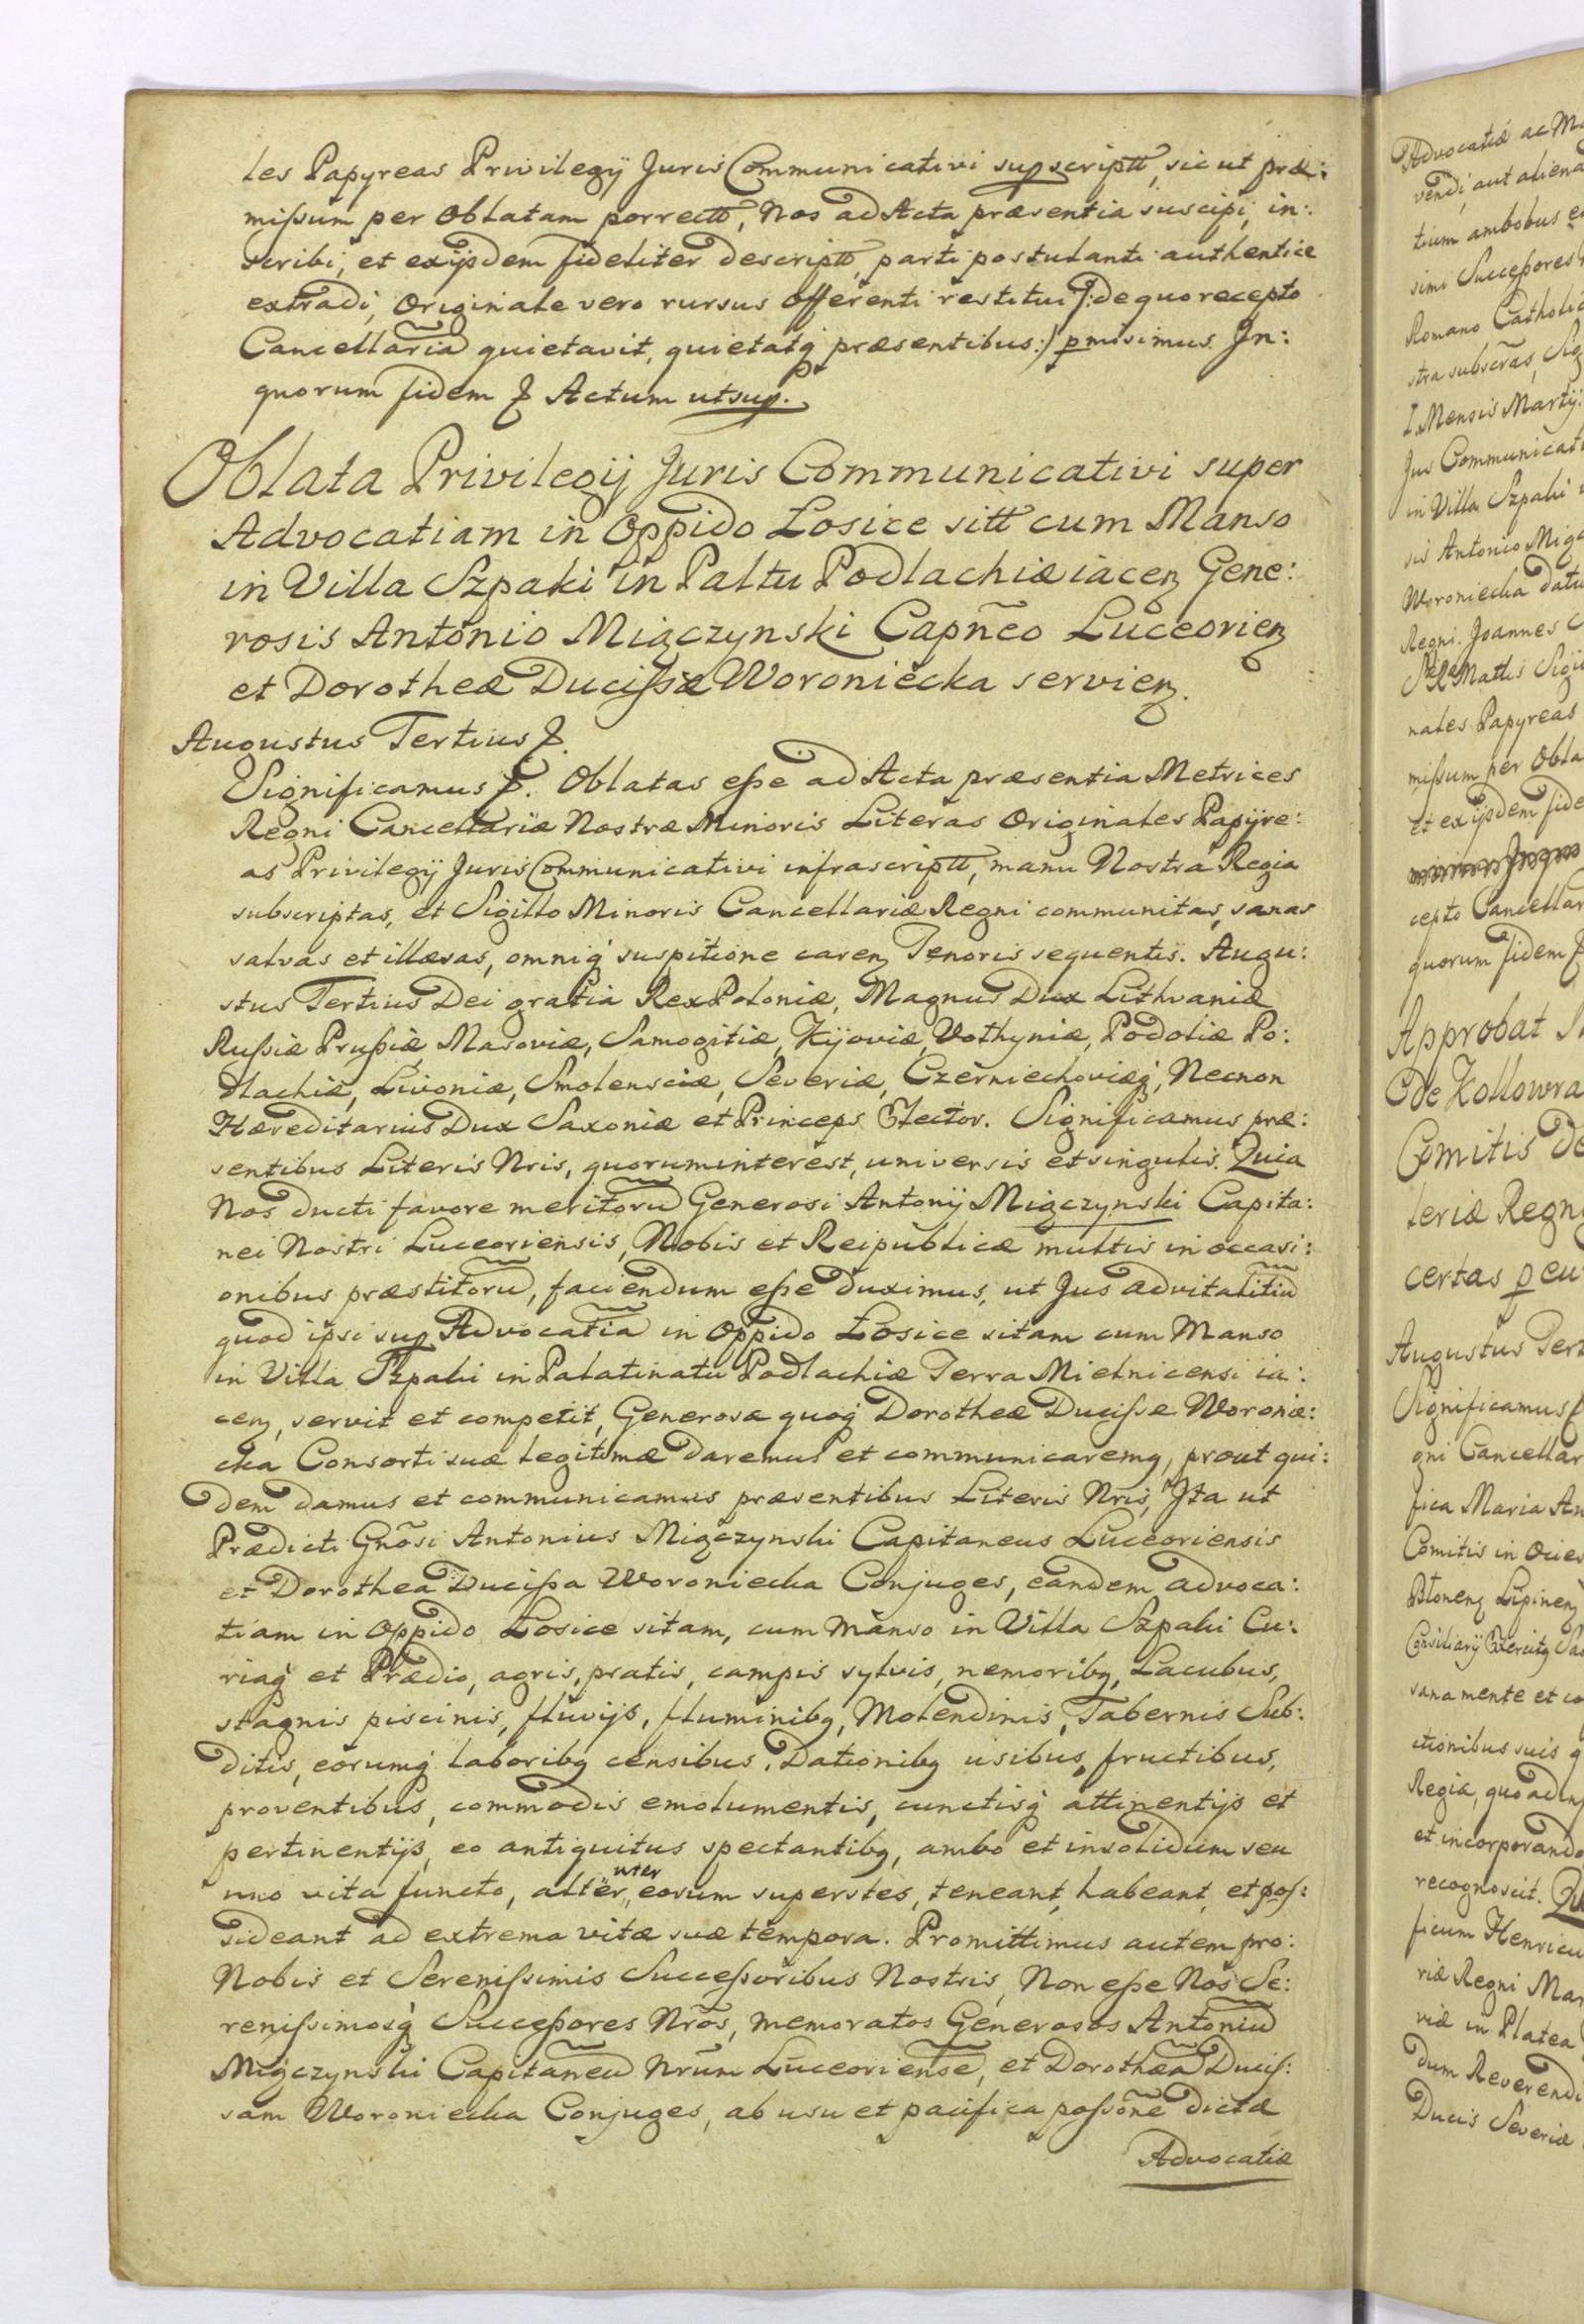 les Papyreas Privilegij Juris Communicativi supscriptt, sic ut præ:
missum per Oblatam porrectt, Nos ad Acta præsentia suscipi, in:
scribi, et exijsdem fideliter descriptt, parti postulanti authentice
extradi, Originale vero rursus Offerenti restitui /: de quo recepto
Cancellariã quietavit, quietatq præsentibus :/ pmisimus. In:
quorum fidem & Actum utsup.
Oblata Privilegij Juris Communicativi super
Advocatiam in Oppido Łosice sitt cum Manso
in Villa Szpaki in Paltu Podlachiæ iacen Gene:
rosis Antonio Miączynski Capñeo Luceorien
et Dorotheæ Ducissæ Woroniecka servien.
Augustus Tertius &.
Significamus &. Oblatas esse ad Acta præsentia Metrices
Regni Cancellariæ Nostræ Minoris Literas Originales Papyre:
as Privilegij Juris Communicativi infrascriptt, manu Nostra Regia
subscriptas, et Sigillo Minoris Cancellariæ Regni communitas, sanas
salvas et illæsas, omniq suspitione caren Tenoris sequentis. Augu:
stus Tertius Dei gratia Rex Poloniæ, Magnus Dux Lithvaniæ
Russiæ Prussiæ, Masoviæ, Samogitiæ, Kijoviæ, Volhyniæ, Podoliæ Po:
dlachiæ, Livoniæ, Smolensciæ, Severiæ, Czerniechoviæq, Necnon
Hæreditarius Dux Saxoniæ et Princeps Elector. Significamus præ:
sentibus Literis Nris, quorum interest, universis et singulis. Quia
Nos ducti favore meritorũ Generosi Antonij Miączynski Capita:
nei Nostri Luceoriensis, Nobis et Reipublicæ multis in occasi:
onibus præstitorũ, faciendum esse duximus, ut Jus advitalitiũ
quod ipsi sup Advocatiã in Oppido Łosice sitam cum Manso
in Villa Szpaki in Palatinatu Podlachiæ Terra Mielnicensi ia:
cen, servit et competit, Generosæ quoq Dorotheæ Ducissæ Woronie:
cka Consorti suæ legitimæ daremus et communicaremq, prout qui:
dem damus et communicamus præsentibus Literis Nris, Ita ut
Prædicti Gnõsi Antonius Miączynski Capitaneus Luceoriensis
et Dorothea Ducissa Woroniecka Conjuges, eandem advoca:
tiam in Oppido Łosice sitam, cum Manso in Villa Szpaki Cu:
riaq et Prædio, agris, pratis, campis sylvis, nemoribq, Lacubus,
stagnis piscinis, fluvijs, fluminibq, Molendinis, Tabernis Sub:
ditis, eorumq laboribq censibus, Dationibq usibus, fructibus,
proventibus, commodis emolumentis, cunctisq attinentijs et
pertinentijs, eo antiquitus spectantibq, ambo et insolidum seu
uno vita functo, alter uter eorum superstes, teneant, habeant, et pos:
sideant ad extrema vitæ suæ tempora. Promittimus autem pro:
Nobis et Serenissimis Successoribus Nostris, Non esse Nos Se:
renissimosq Successores Nrõs, memoratos Generosos Antoniũ
Miączynski Capitaneũ Nrũm Luceoriensẽ, et Dorotheã Ducis:
sam Woroniecka Conjuges, ab usu et pacifica possõne dictæ
Advocatiæ
Advocatiæ ac
vendi, aut aliena
tium ambobus
simi Successores
Romano Catholic
stra subscrãs, Sig
I. Mensis Martij
Jus Communicati
in Villa Szpaki
sis Antonio Miąc
Woroniecka datu
Regni. Joannes
nales Papyreas
missum per Obla
et exijsdem fide
cepto Cancellar
quorum fidem &
Approbat
de Kollowra
Comitis de
leriæ Regn
certas p eu
Augustus Tert
Significamus &
gni Cancellar
fica Maria An
Comitis in
sana mente et co
ctionibus suis q
Regia, quo ad
et incorporando
recognoscit. Qu
ficum Henricu
riæ Regni Mar
viæ in Platea
dum Reverendi
Ducis Severiæ